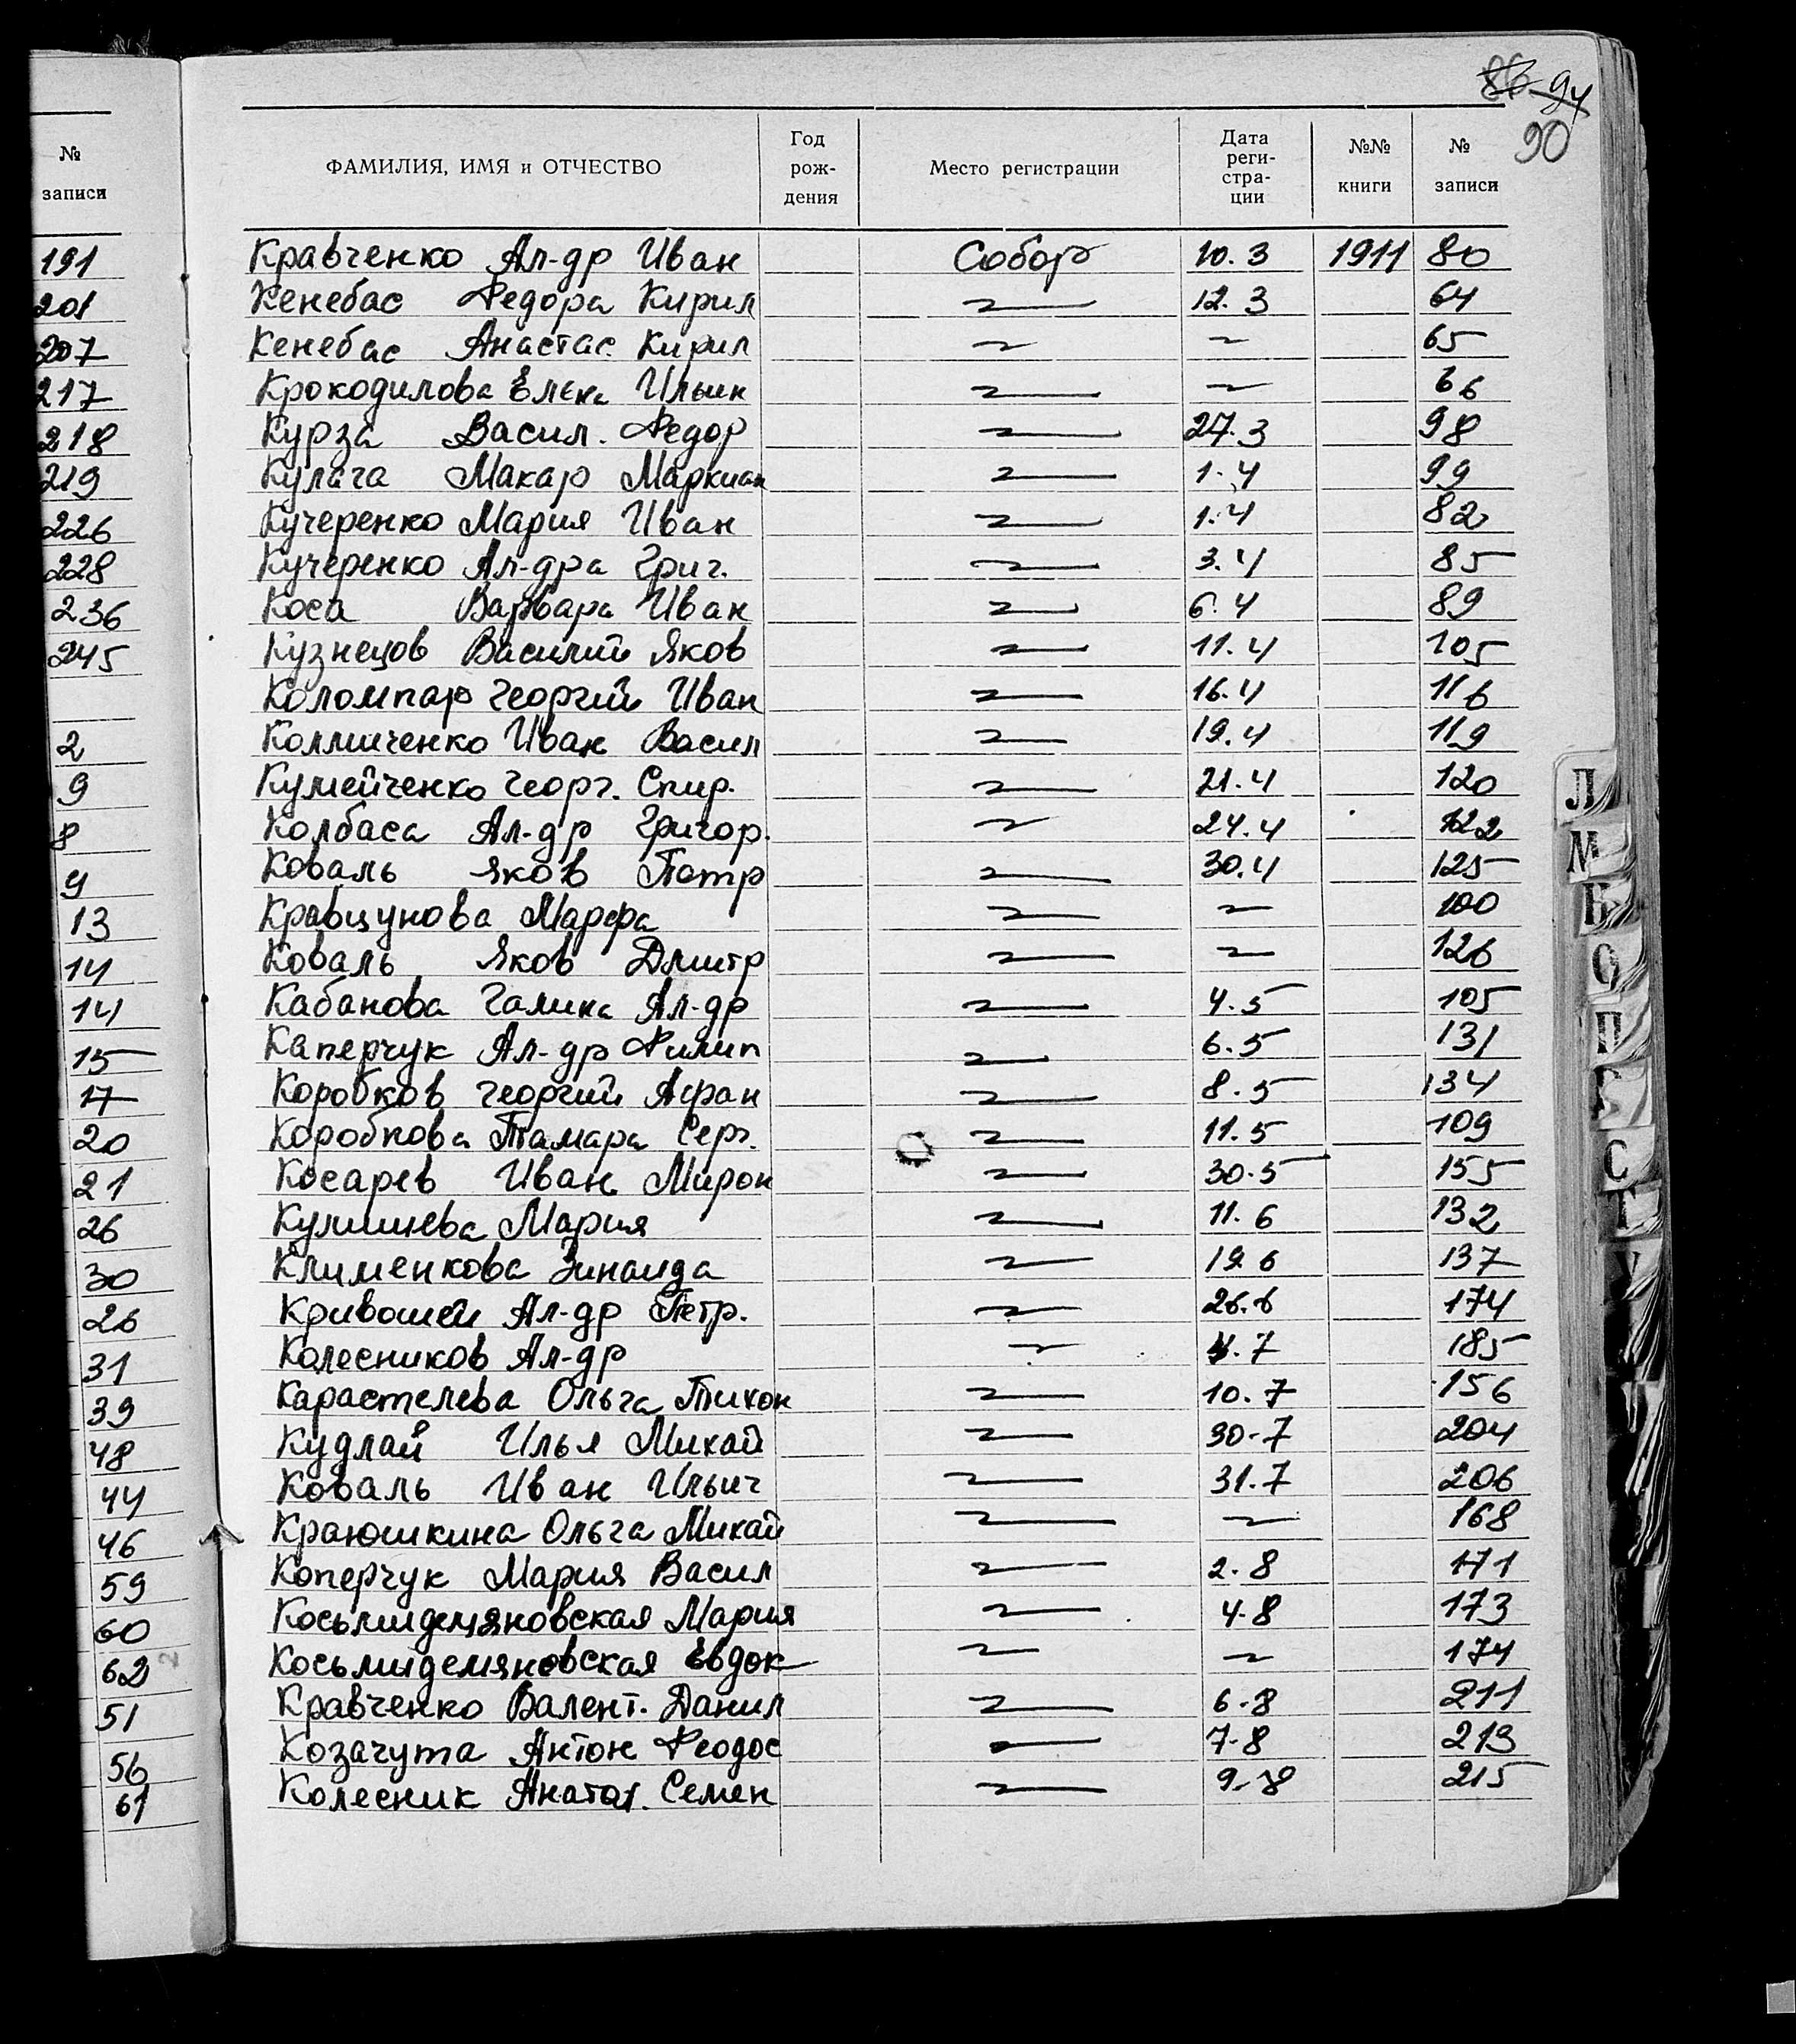 86 94
90
№
записи
191
201
207
217
218
219
226
228
236
245
2
9
8
9
13
14
14
15
17
20
21
26
30
26
31
39
48
44
46
59
60
62
51
56
61
ФАМИЛИЯ, ИМЯ и ОТЧЕСТВО Год рож- дения Место регистрации Дата реги- стра- ции №№ книги № записи
Кравченко Ал-др Иван Собор 10.3 1911 80
Кенебас Федора Кирил 12.3 64
Кенебас Анастас. Кирил 65
Крокодилова Елена Ильин 66
Курза Васил. Федор 27.3 98
Кулага Макар Маркиан 1.4 99
Кучеренко Мария Иван 1.4 82
Кучеренко Ал-дра Григ. 3.4 85
Коса Варвара Иван 6.4 89
Кузнецов Василий Яков 11.4 105
Коломпар Георгий Иван 16.4 116
Иван Васил 19.4 119
Кумейченко Георг. Спир. 21.4 120
Колбаса Ал-др Григор. 24.4 122
Коваль Яков Петр 30.4 125
Кравцунова Марфа 100
Коваль Яков Дмитр 126
Кабанова Галина Ал-др 4.5 105
Каперчук Ал-др Филип 6.5 131
Коробков Георгий Афан 8.5 134
Коробкова Тамара Серг. 11.5 109
Косарев Иван Мирон 30.5 155
Мария 11.6 132
Клименкова Зинаида 19.6 137
Кривошей Ал-др Петр. 26.6 174
Колесников Ал-др 4.7 185
Карастелева Ольга Тихон 10.7 156
Кудлай Илья Михай 30.7 204
Коваль Иван Ильич 31.7 206
Краюшкина Ольга Михай 168
Коперчук Мария Васил 2.8 171
Косьмидемяновская Мария 4.8 173
Косьмидемяновская Евдок 174
Кравченко Валент. Данил 6.8 211
Козачута Антон Феодос 7.8 213
Колесник Анатол. Семен 9.8 215
Л
М
О
П
С
Т
У